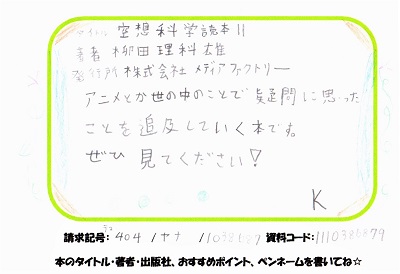 タイトル 空想科学読本11
著者 柳田理科雄
発行所 株式会社メディアファクトリー
アニメとか世の中のことで疑問に思った
ことを追及していく本です。
ぜひ見てください!
K
請求記号: 404 /ヤナ / 資料コード:
本のタイトル・著者・出版社、おすすめポイント、ペンネームを書いてね☆